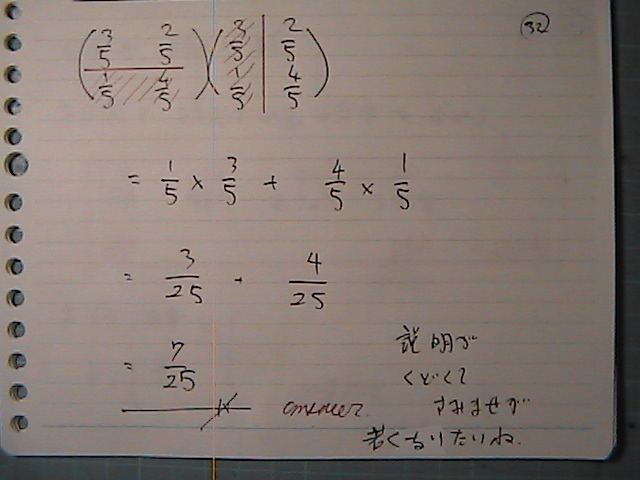 32
(3/5 2/5 1/5 4/5)(3/5 2/5 1/5 4/5)
= 1/5 × 3/5 + 4/5 × 1/5
= 3/25 + 4/25
= 7/25
answer.
説明が
くどくて
すみませが
若くなりたいね.